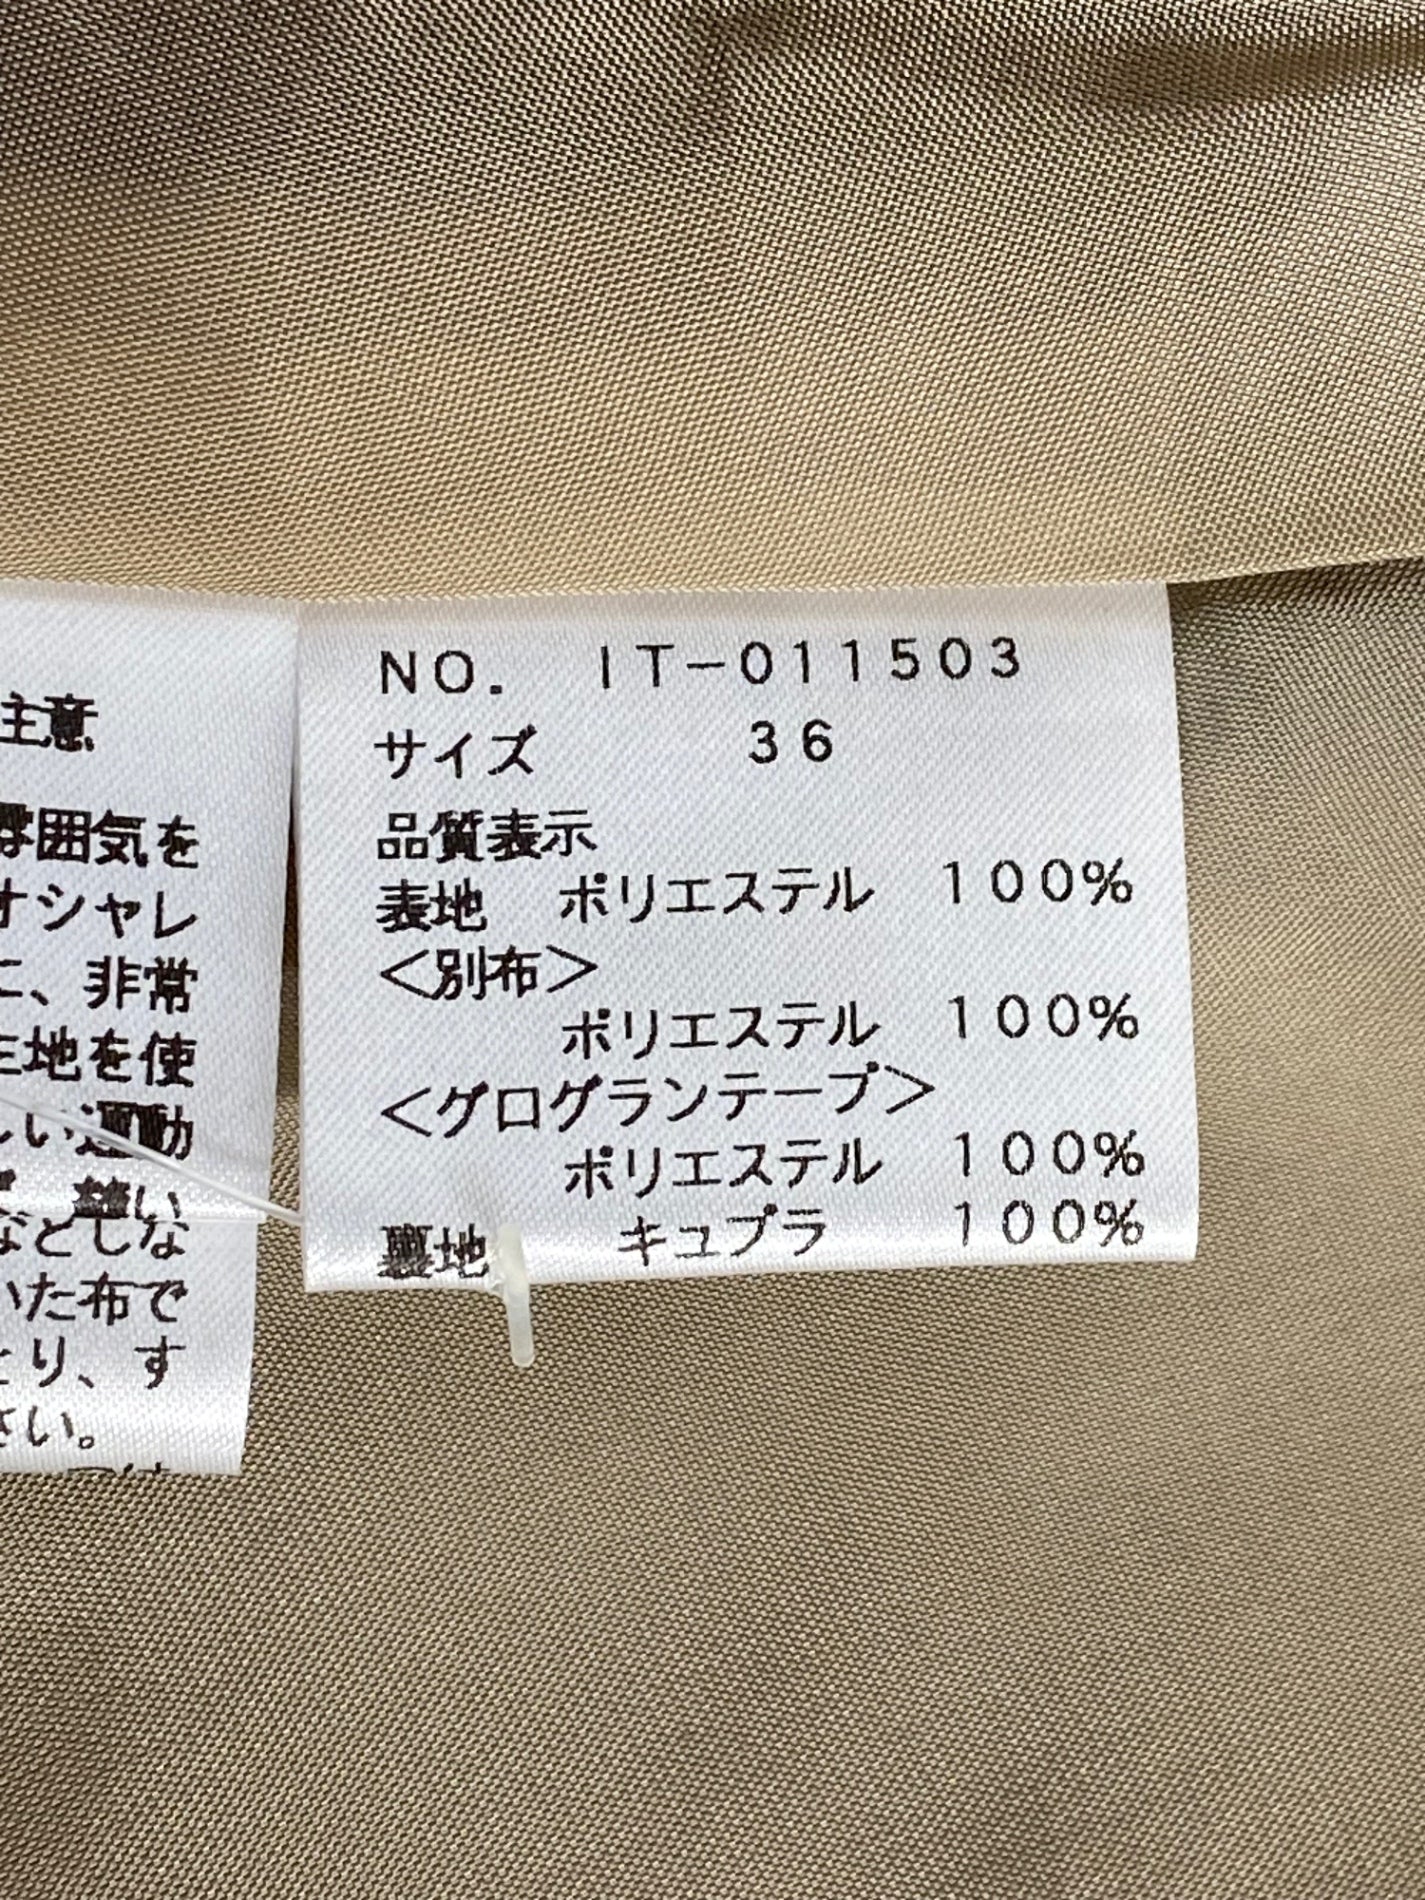 主意
雰囲気を
オシャレ
に、非常
生地を使
しい運動
い
などしな
いた布で
とり、す
さい。
NO. IT-011503
サイズ 36
品質表示
表地 ポリエステル 100%
<別布>
ポリエステル 100%
<グログランテープ>
ポリエステル 100%
裏地 キュプラ 100%